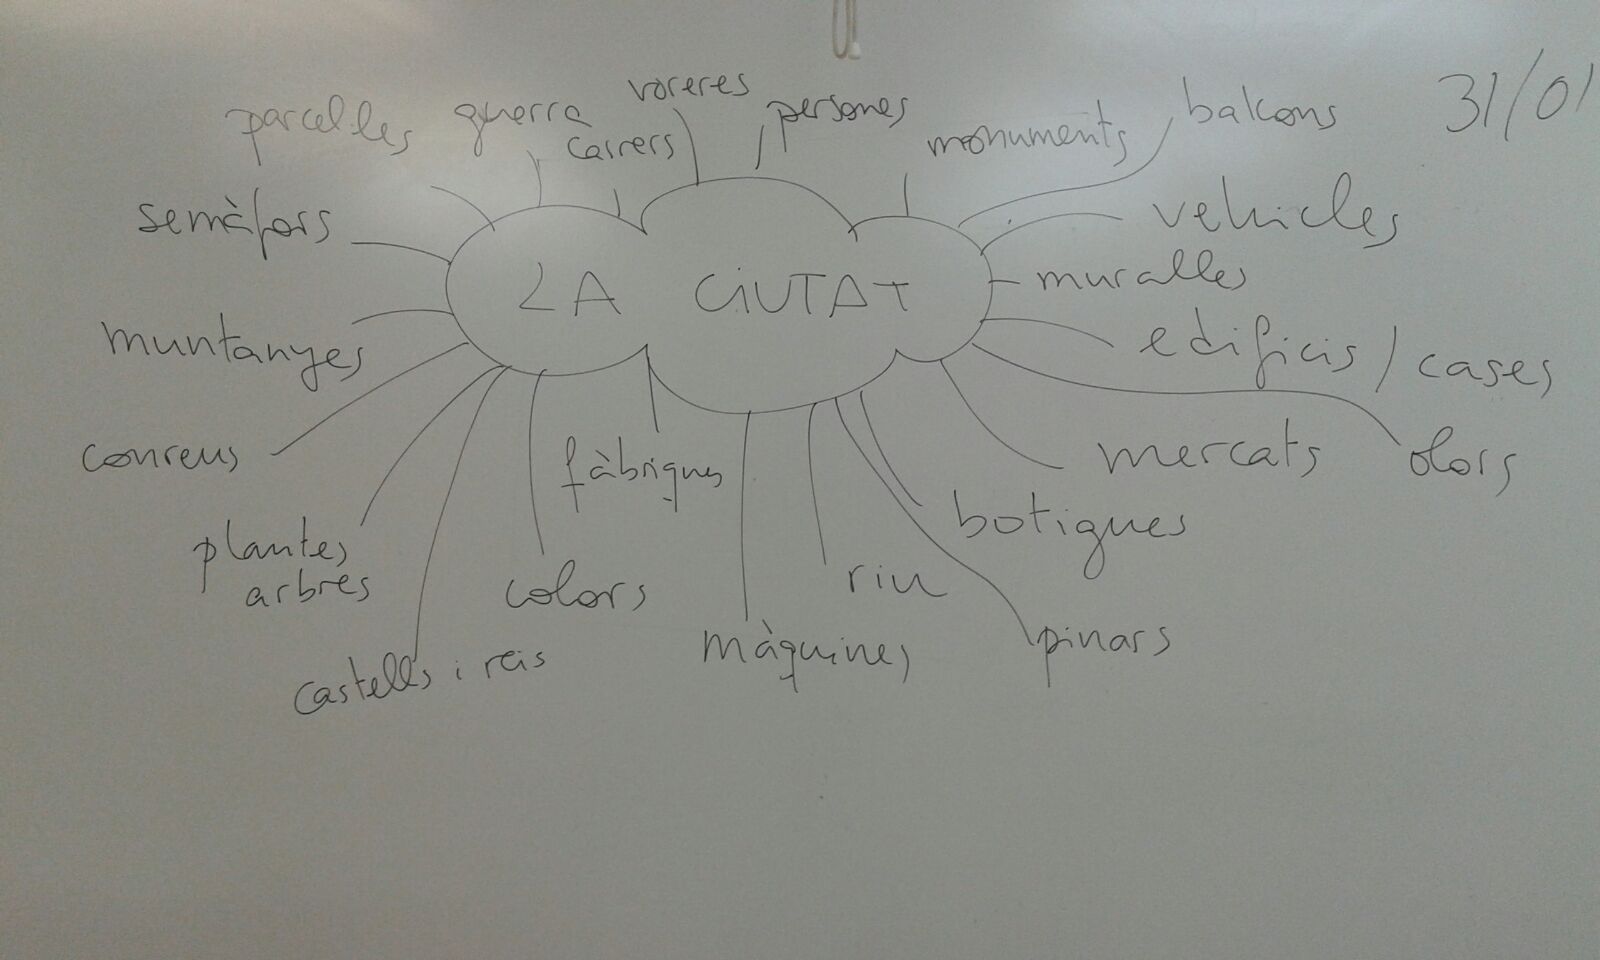 31/01
voreres
parcel·les
guerra
carrers
persones
monuments
balcons
semàfors
vehicles
LA CIUTAT
muralles
muntanyes
edificis / cases
conreus
fàbriques
mercats
olors
plantes
arbres
colors
botigues
riu
castells i reis
màquines
pinars